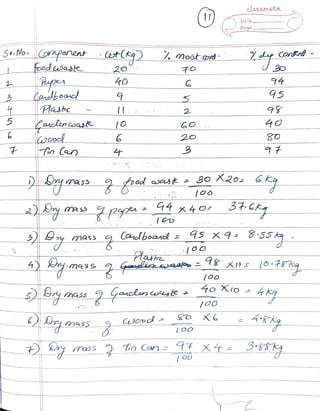 classmate
Date
Page
11
Sr.No. Component wt (kg) % moist cont. % dry content.
1 food waste 20 70 30
2 Paper 40 6 94
3 Cardboard 9 5 95
4 Plastic 11 2 98
5 Garden waste 10 60 40
6 wood 6 20 80
7 Tin Can 4 3 97
1) Dry mass of food waste = 30/100 × 20 = 6 kg
2) Dry mass of paper = 94/100 × 40 = 37.6 kg
3) Dry mass of Cardboard = 95/100 × 9 = 8.55 kg.
4) Dry mass of Plastic = 98/100 × 11 = 10.78 kg
5) Dry mass of Garden waste = 40/100 × 10 = 4 kg
6) Dry mass of wood = 80/100 × 6 = 4.8 kg
7) Dry mass of Tin Can = 97/100 × 4 = 3.88 kg